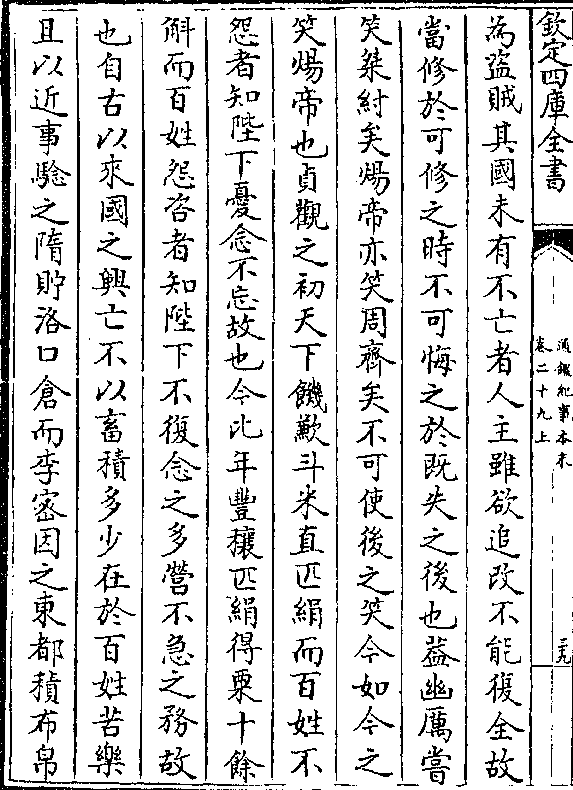 欽定四庫全書
通鑑紀事本末
卷二十九上
三九
為盜賊其國未有不亡者人主雖欲追改不能復全故
當修於可修之時不可悔之於既失之後也葢幽厲嘗
笑桀紂矣煬帝亦笑周齊矣不可使後之笑今如今之
笑煬帝也貞觀之初天下饑歉斗米直匹絹而百姓不
怨者知陛下憂念不忘故也今比年豐穰匹絹得粟十餘
斛而百姓怨咨者知陛下不復念之多營不急之務故
也自古以來國之興亡不以畜積多少在於百姓苦樂
且以近事驗之隋貯洛口倉而李宻因之東都積布帛